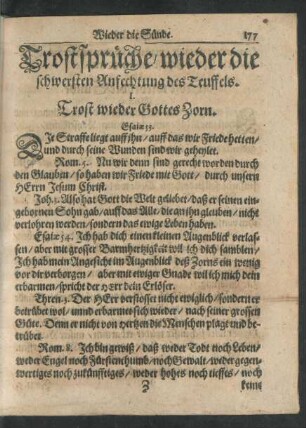 Wieder die Sünde. 177
Trostsprüche/ wieder die
schwersten Anfechtung des Teuffels.
I.
Trost wieder Gottes Zorn.
Esaiæ 53.
DIe Straffe liegt auff ihn/ auff das wir Friede hetten/
und durch seine Wunden sind wir geheylet.
Rom. 5. Nu wir denn sind gerecht worden durch
den Glauben/ so haben wir Friede mit Gott/ durch unsern
HErrn Jesum Christ.
Joh. 3. Also hat Gott die Welt geliebet/ daß er seinen ein-
gebornen Sohn gab/ auff das Alle/ die an ihn gleuben/ nicht
verlohren werden/ sondern das ewige Leben haben.
Esaiæ 54. Ich hab dich einen kleinen Augenblick verlas-
sen/ aber mit grosser Barmhertzigkeit wil ich dich samblen/
Ich hab mein Angesicht im Augenblick deß Zorns ein wenig
vor dir verborgen/ aber mit ewiger Gnade wil ich mich dein
erbarmen/ spricht der HErr dein Erlöser.
Thren. 3. Der HErr verstosset nicht ewiglich/ sondern er
betrübet wol/ unnd erbarmet sich wieder/ nach seiner grossen
Güte. Denn er nicht von hertzen die Menschen plaget und be-
trübet.
Rom. 8. Ich bin gewiß/ daß weder Todt noch Leben/
weder Engel noch Fürstenthumb/ noch Gewalt/ weder gegen-
wertiges noch zukünfftiges/ weder hohes noch tieffes/ noch
Z keine